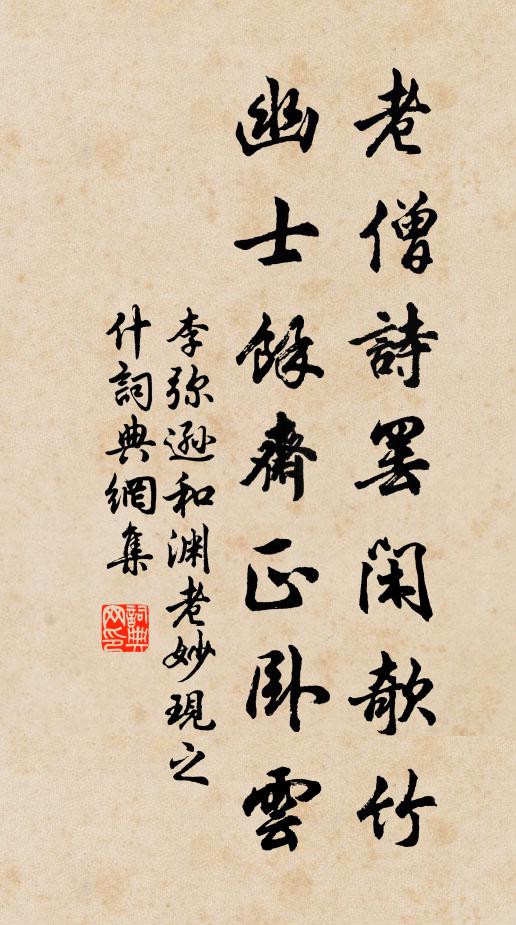 老僧詩罢閑欹竹
幽士餘齋正卧雲
李弥遜和渊老妙現之
什詞典網集
詞典
网印